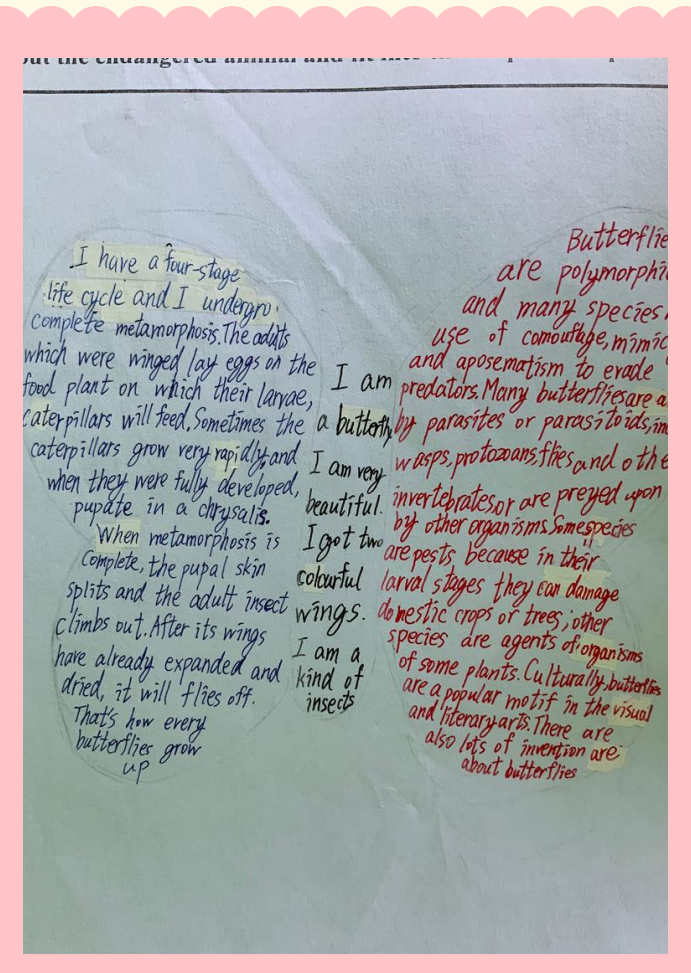 out the endangered animal and
I have a four-stage
life cycle and I undergro
complete metamorphosis. The adults
which were winged lay eggs on the
food plant on which their larvae,
caterpillars will feed. Sometimes the
caterpillars grow very rapidly, and
when they were fully developed,
pupate in a chrysalis.
When metamorphosis is
complete, the pupal skin
splits and the adult insect
climbs out. After its wings
have already expanded and
dried, it will flies off.
That's how every
butterflies grow
up
I am
a butterfly,
I am very
beautiful.
I got two
colourful
wings.
I am a
kind of
insects
Butterflie
are polymorphi
and many species
use of comouflage, mimic
and aposematism to evade
predators. Many butterflies are a
by parasites or parasitoids, in
wasps, protozoans, flies and othe
invertebrates, or are preyed upon
by other organisms. Some species
are pests because in their
larval stages they can damage
domestic crops or trees; other
species are agents of organisms
of some plants. Culturally, butterflies
are a popular motif in the visual
and literary arts. There are
also lots of invention are
about butterflies